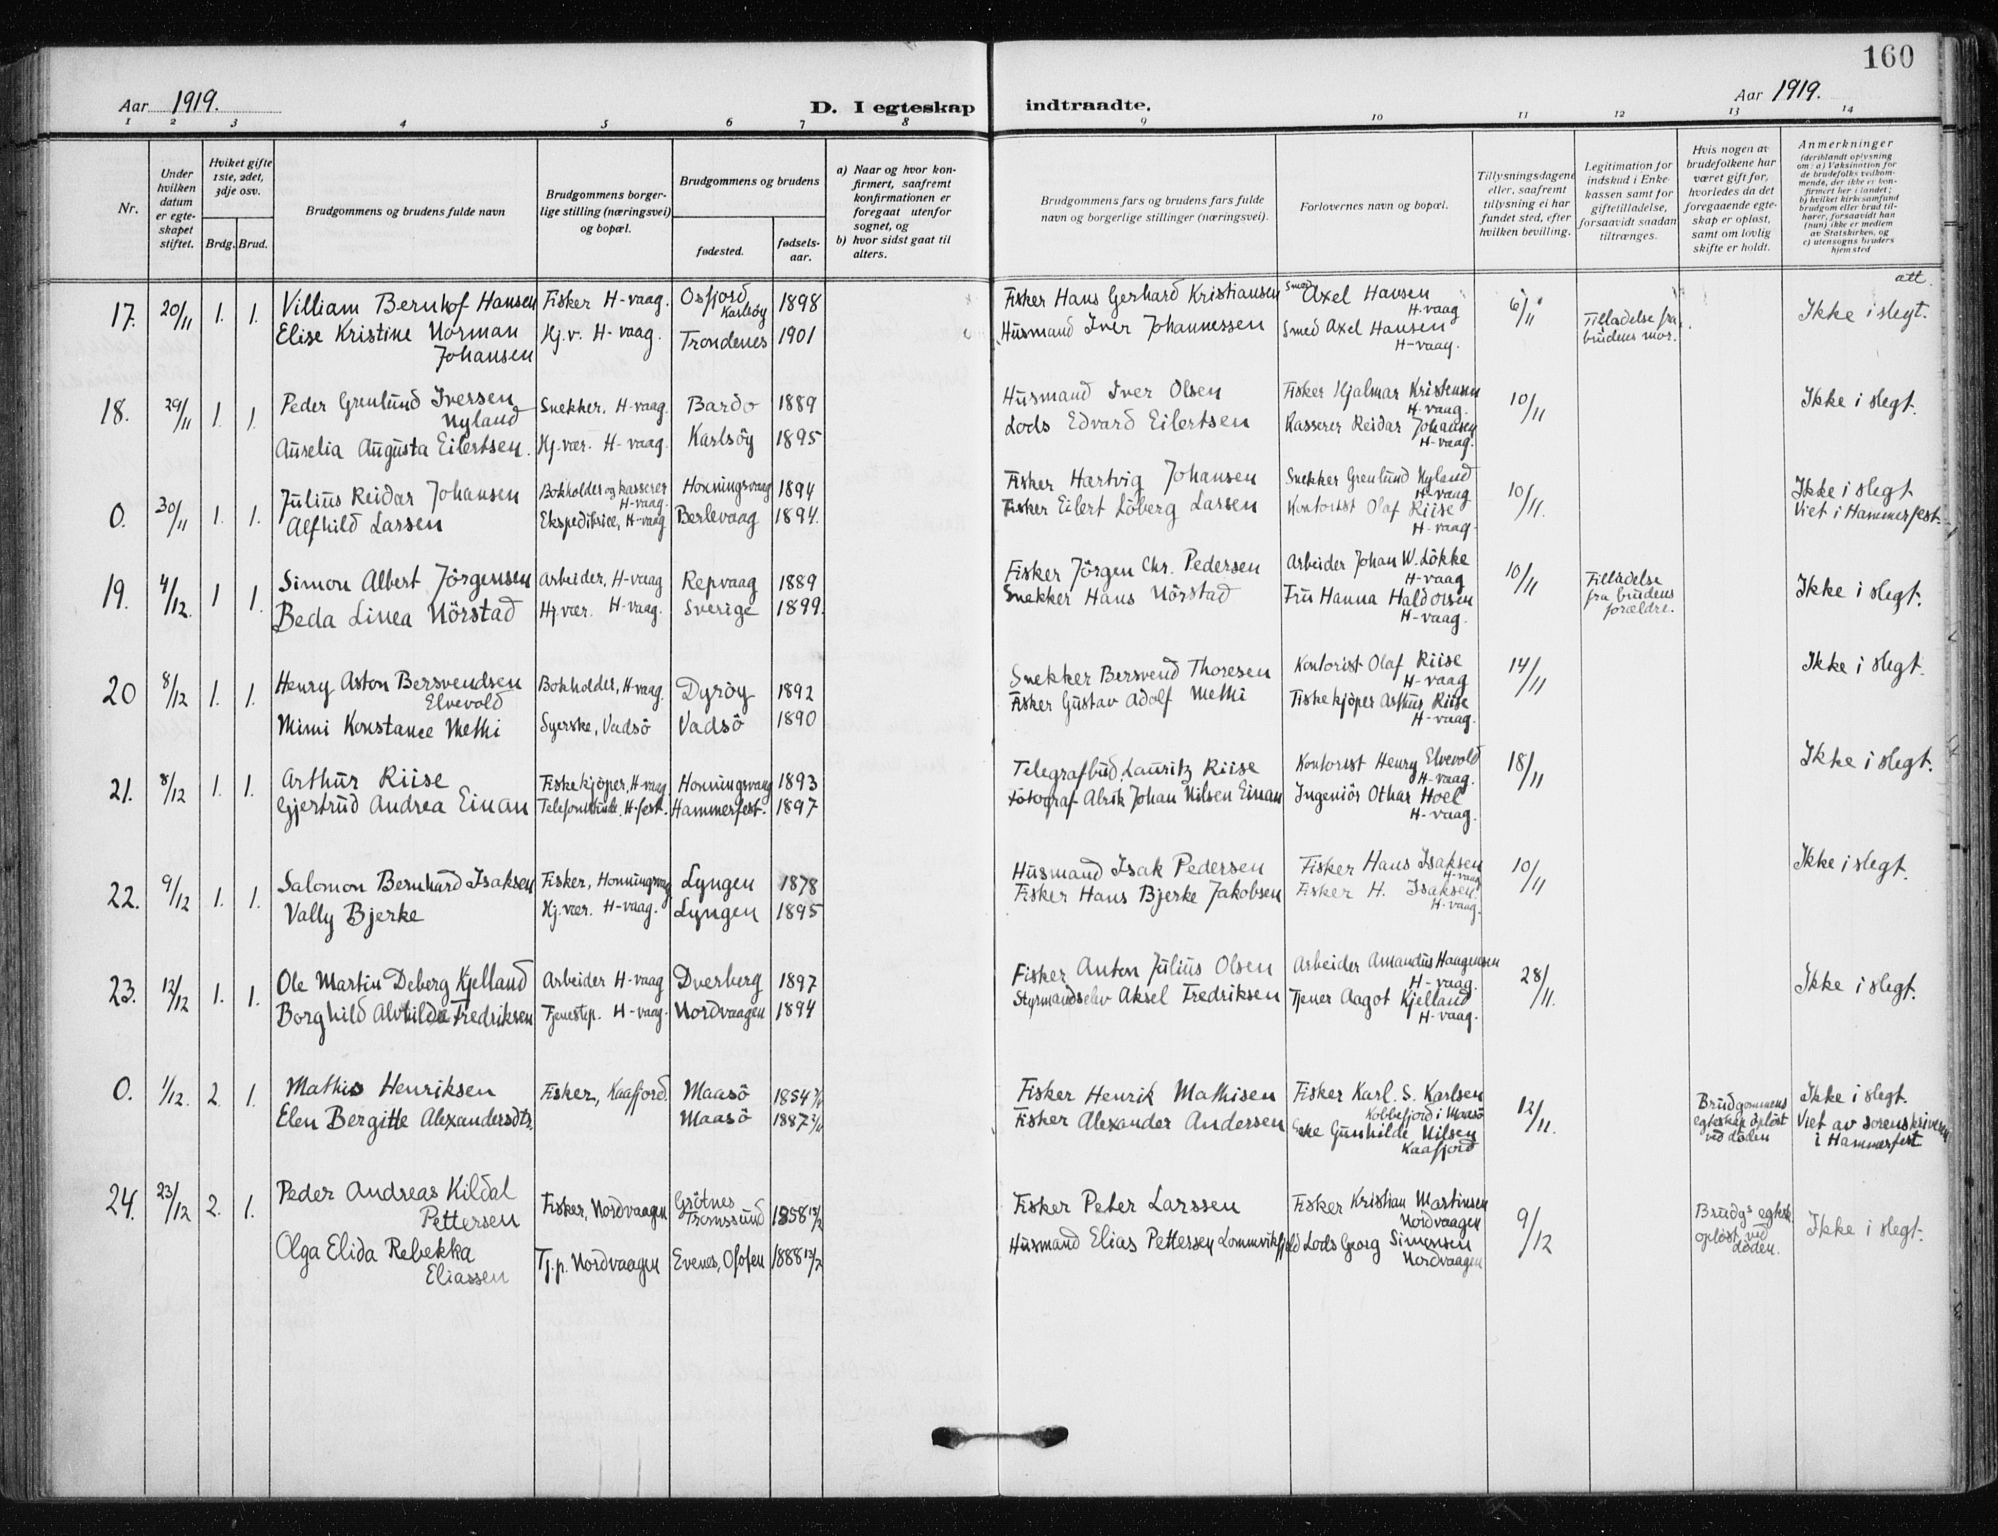 160
Aar 1919.
D. I egteskap indtraadte.
Aar 1919.
1 2 3 4 5 6 7 8 9 10 11 12 13 14
Nr.
Under hvilken datum er egteskapet stiftet.
Hviket gifte 1ste, 2det, 3dje osv.
Brdg. Brud.
Brudgommens og brudens fulde navn
Brudgommens borgerlige stilling (næringsvei) og bopæl.
Brudgommens og brudens
fødested.
fødselsaar.
a) Naar og hvor konfirmert, saafremt konfirmationen er foregaat utenfor sognet, og
b) hvor sidst gaat til alters.
Brudgommens fars og brudens fars fulde navn og borgerlige stillinger (næringsvei).
Forlovernes navn og bopæl.
Tillysningsdagene eller, saafremt tillysning ei har fundet sted, efter hvilken bevilling.
Legitimation for indskud i Enkekassen samt for giftetilladelse, forsaavidt saadan tiltrænges.
Hvis nogen av brudefolkene har været gift før, hvorledes da det foregaaende egteskap er opløst, samt om lovlig skifte er holdt.
Anmerkninger
(deriblandt oplysning om: a) Vaksination for de brudefolks vedkommende, der ikke er konfirmert her i landet; b) hvilket kirkesamfund brudgom eller brud tilhører, forsaavidt han (hun) ikke er medlem av Statskirken, og c) utensogns bruders hjemsted
att.
17. 20/11 1. 1. Villiam Bernhof Hansen Fisker H-vaag. Osfjord Karlsöy 1898 Fisker Hans Gerhard Kristiansen Smed Axel Hansen H-vaag 6/11 Tilladelse fra brudens mor. Ikke i slegt.
Elise Kristine Norman Johansen Hj.v. H-vaag. Trondenes 1901 Husmand Iver Johannessen Smed Axel Hansen H-vaag.
18. 29/11 1. 1. Peder Grenlund Iversen Nyland Snekker, H-vaag. Bardo 1889 Husmand Iver Olsen Fisker Hjalmar Kristensen H-vaag. 10/11 Ikke i slegt.
Aurelia Augusta Eilertsen. Hj.vær. H-vaag. Karlsöy 1895 Lods Edvard Eilertsen Kasserer Reidar Johansen H-vaag.
0. 30/11 1. 1. Julius Reidar Johansen Bokholder og kasserer H-vaag. Honningsvaag 1894 Fisker Hartvig Johansen Snekker Grenlund Nyland H-vaag 10/11. Ikke i slegt Viet i Hammerfest.
Alfhild Larsen Ekspeditrice, H-vaag Berlevaag 1894. Fisker Eilert Löberg Larsen Kontorist Olaf Riise H-vaag.
19. 4/12. 1 1. Simon Albert Jörgensen Arbeider, H-vaag Repvaag 1889 Fisker Jörgen Chr. Pedersen Arbeider Johan W. Lökke H-vaag 10/11 Tilladelse fra brudens forældre. Ikke i slegt.
Beda Linea Nörstad Hj.vær. H-vaag. Sverige 1899. Snekker Hans Nörstad Fru Hanna Haldorsen H-vaag.
20 8/12 1. 1. Henry Aston Bersvendsen Elvevold Bokholder, H-vaag. Dyröy 1892 Snekker Bersvend Thoresen Kontorist Olaf Riise H-vaag 14/11 Ikke i slegt.
Mimi Konstance Methi Syerske, Vadsö Vadsö 1890 Fisker Gustav Adolf Methi Fiskekjöper Arthur Riise H-vaag.
21. 8/12 1. 1. Arthur Riise Fiskekjöper, H-vaag. Honningsvaag 1893 Telegrafbud Lauritz Riise Kontorist Henry Elvevold H-vaag. 18/11 Ikke i slegt.
Gjertrud Andrea Einan H-fest. Hammerfest. 1897 Fotograf Alrik Johan Nilsen Einan Ingeniör Othar Hoel H-vaag.
22. 9/12 1. 1. Salomon Bernhard Isaksen Fisker, Honningsvaag Lyngen 1878 Husmand Isak Pedersen Fisker Hans Isaksen H-vaag 10/11 Ikke i slegt.
Vally Bjerke Hj.vær. H-vaag. Lyngen 1895 Fisker Hans Bjerke Jakobsen Fisker H. Isaksen H-vaag.
23. 12/12 1. 1. Ole Martin Deberg Kjelland Arbeider H-vaag Dverberg 1897 Fisker Anton Julius Olsen Arbeider Amandus Haagensen H-vaag. 28/11. Ikke i slegt.
Borghild Alvhilde Fredriksen Tjenestep. H-vaag. Nordvaagen 1894 Styrmandselev Aksel Fredriksen Tjener Aagot Kjelland H-vaag.
0. 1/12. 2. 1. Mathis Henriksen Fisker, Kaafjord. Maasö 1854 Fisker Henrik Mathisen Fisker Karl. S. Karlsen Kobbefjord i Maasö 12/11. Brudgommens egteskap oplöst ved döden Ikke i slegt. Viet av sorenskriveren i Hammerfest
Elen Bergitte Alexandersdtr. Maasö 1887 Fisker Alexander Andersen Gunhilde Nilsen Kaafjord
24. 23/12 2. 1. Peder Andreas Kildal Pettersen Fisker, Nordvaagen Grötnes Tromssund 1858 13/2 Fisker Peter Larssen Fisker Kristian Martinsen Nordvaagen 9/12 Brudgs egtesk. oplöst ved döden. Ikke i slegt.
Olga Elida Rebekka Eliassen Tj.p. Nordvaagen Evenes, Ofoten 1888 13/2 Husmand Elias Pettersen Lommvikfjeld Lods Georg Simonsen Nordvaagen